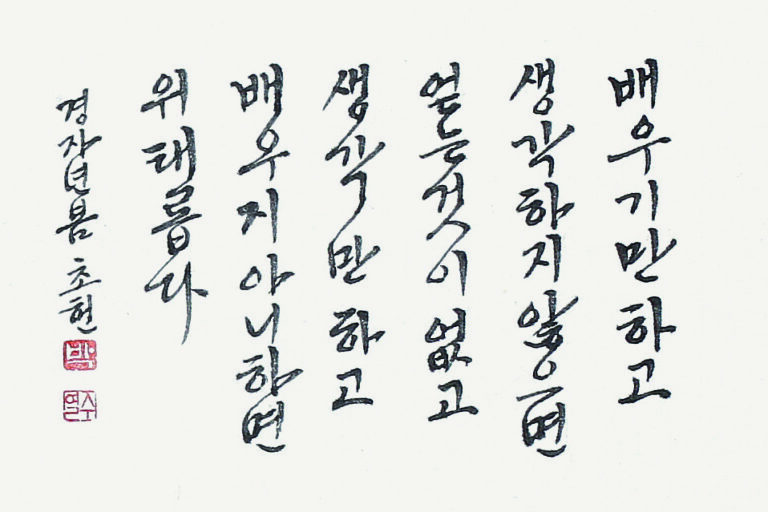 배우기만하고
생각하지않으면
얻는것이없고
생각만하고
배우지아니하면
위태롭다
경자년봄 초현
박
수열